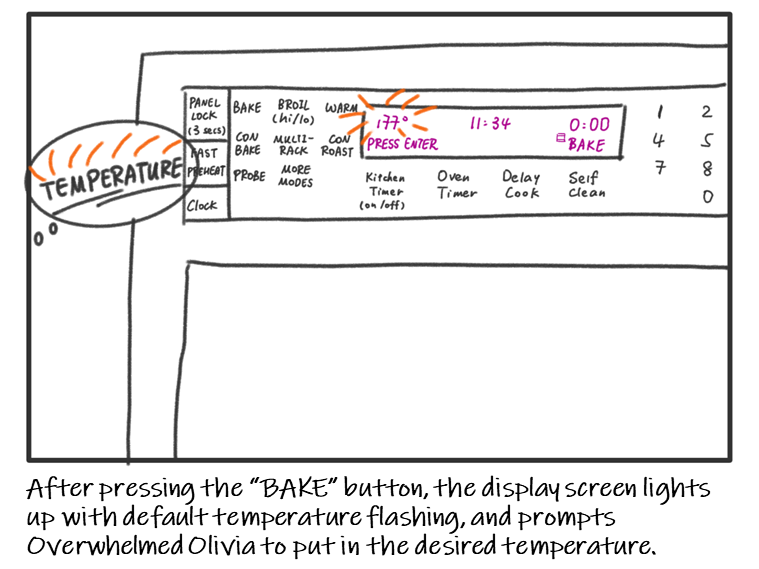 TEMPERATURE
PANEL
LOCK
(3 secs)
FAST
PREHEAT
Clock
BAKE
BROIL
(hi/lo)
WARM
CON
BAKE
MULTI-
RACK
CON
ROAST
PROBE
MORE
MODES
177°
11:34
0:00
PRESS ENTER
BAKE
Kitchen
Timer
(on/off)
Oven
Timer
Delay
Cook
Self
Clean
1 2
4 5
7 8
0
After pressing the “BAKE” button, the display screen lights
up with default temperature flashing, and prompts
Overwhelmed Olivia to put in the desired temperature.